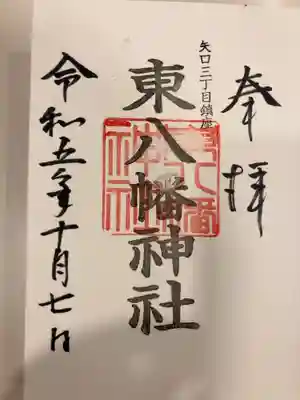 奉拝
矢口三丁目鎮座
東八幡神社
令和五年十月七日